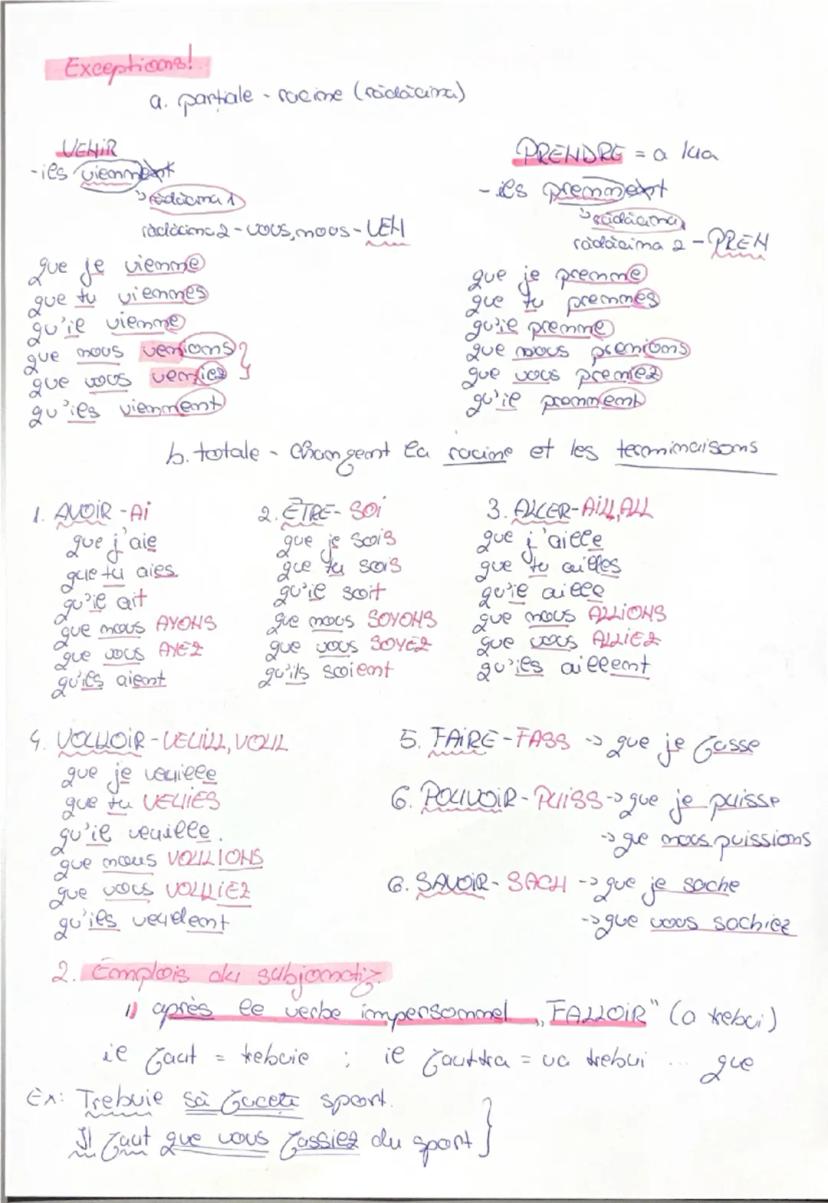 Exceptions!
a. partiale - racine (rădăcina)
VENIR
-ils viennent
rădăcina 1
rădăcina 2 - vous, nous - VEN
que je vienne
que tu viennes
qu'il vienne
que nous venions
que vous veniez
qu'ils viennent
PRENDRE = a lua
- ils prennent
rădăcina 1
rădăcina 2 - PREN
que je prenne
que tu prennes
qu'il prenne
que nous prenions
que vous preniez
qu'il prennent
b. totale - changent la racine et les terminaisons
1. AVOIR - AI
que j'aie
que tu aies
qu'il ait
que nous AYONS
que vous AYEZ
qu'ils aient
2. ÊTRE - SOI
que je sois
que tu sois
qu'il soit
que nous SOYONS
que vous SOYEZ
qu'ils soient
3. ALLER - AILL, ALL
que j'aille
que tu ailles
qu'il aille
que nous ALLIONS
que vous ALLIEZ
qu'ils aillent
4. VOULOIR - VEUILL, VOUL
que je veuille
que tu VEUIES
qu'il veuille.
que nous VOULIONS
que vous VOULIEZ
qu'ils
5. FAIRE - FASS -> que je fasse
6. POUVOIR - PUISS -> que je puisse
-> que nous puissions
6. SAVOIR - SACH -> que je sache
-> que vous sachiez
2. Emplois du subjonctif
1) après le verbe impersonnel „FALLOIR" (a trebui)
il faut = trebuie ; il faudra = va trebui ... que
Ex: Trebuie să faceți sport.
Il faut que vous fassiez du sport